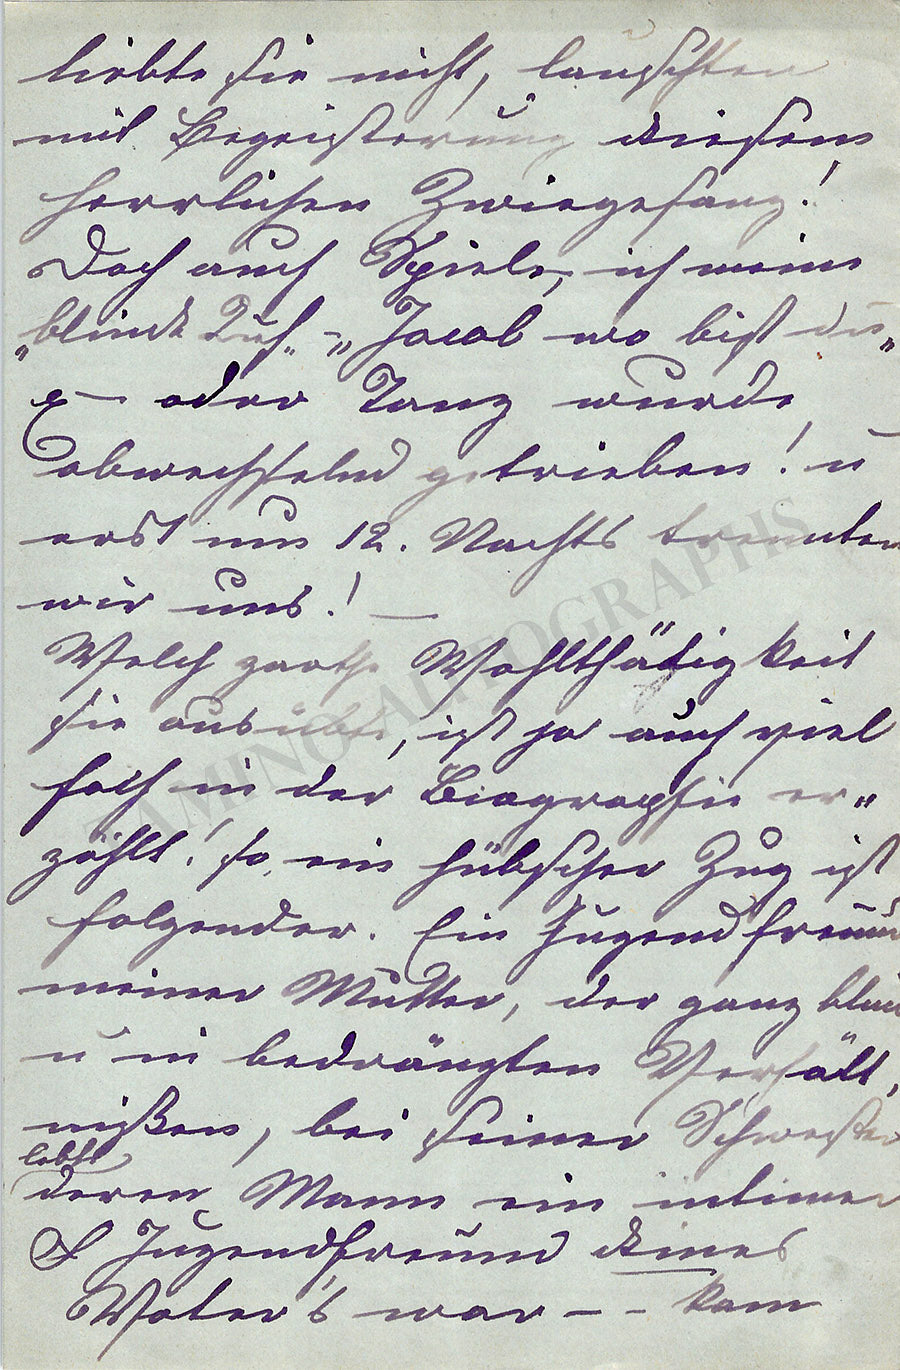 liebte sie nicht, lauschten
mit Begeisterung diesem
herrlichen Zwiegesang!
Doch auch Spiele, ich meine
„blinde Kuh„ - „Jacob wo bist du„
- oder Tanz wurde
abwechselnd getrieben! u
erst um 12. Nachts trennten
wir uns! —
Welch zarthe Wohlthätigkeit
sie ausübte, ist ja auch viel
fach in der Biographie er„
zählt! so, ein hübscher Zug ist
folgender. Ein Jugendfreund
meiner Mutter, der ganz blind
u in bedrängten Verhält,
nißen, bei seiner Schwester
lebte
deren Mann ein intimer
Jugendfreund deines
Vater's war - - kam
TAMINO AUTOGRAPHS